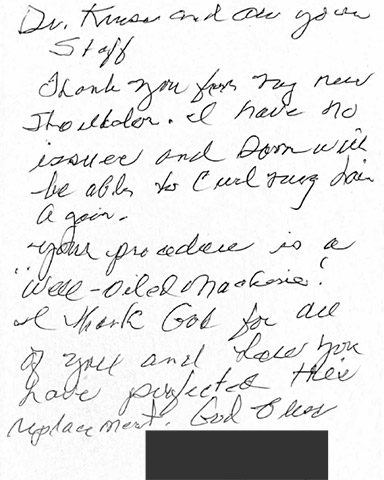 Dr. Kruse and all your
Staff
Thank you for my new
Shoulder. I have no
issues and soon will
be able to Curl my hair
Again.
Your procedure is a
"Well-Oiled Machine!"
I thank God for all
of you and how you
have perfected this
replacement. God Bless